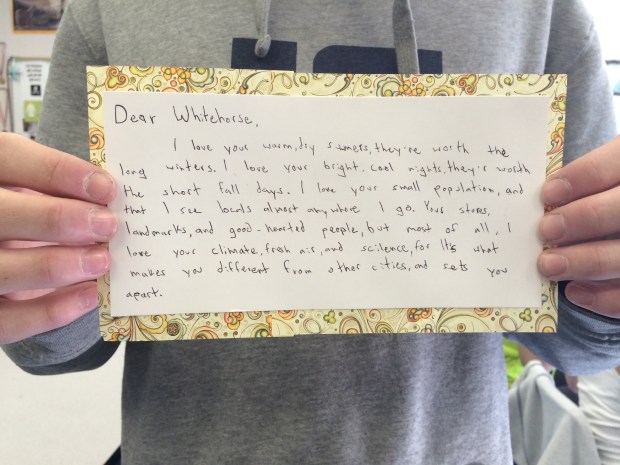 Dear Whitehorse,
I love your warm, dry summers, they're worth the
long winters. I love your bright, cool nights, they'r worth
the short fall days. I love your small population, and
that I see locals almost anywhere I go. Your stores,
landmarks, and good-hearted people, but most of all, I
love your climate, fresh air, and scilence, for It's what
makes you different from other cities, and sets you
apart.